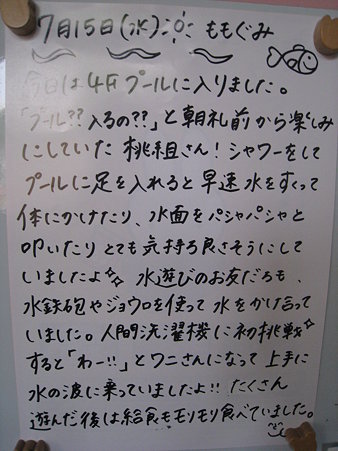 7月15日(水) ももぐみ
今日は4Fプールに入りました。
「プール??入るの??」と朝礼前から楽しみ
にしていた桃組さん!シャワーをして
プールに足を入れると早速水をすくって
体にかけたり、水面をパシャパシャと
叩いたりとても気持ち良さそうにして
いましたよ 水遊びのお友だちも、
水鉄砲やジョウロを使って水をかけ合って
いました。人間洗濯機に初挑戦
すると「わー!!」とワニさんになって上手に
水の波に乗っていましたよ!!たくさん
遊んだ後は給食もモリモリ食べていました。